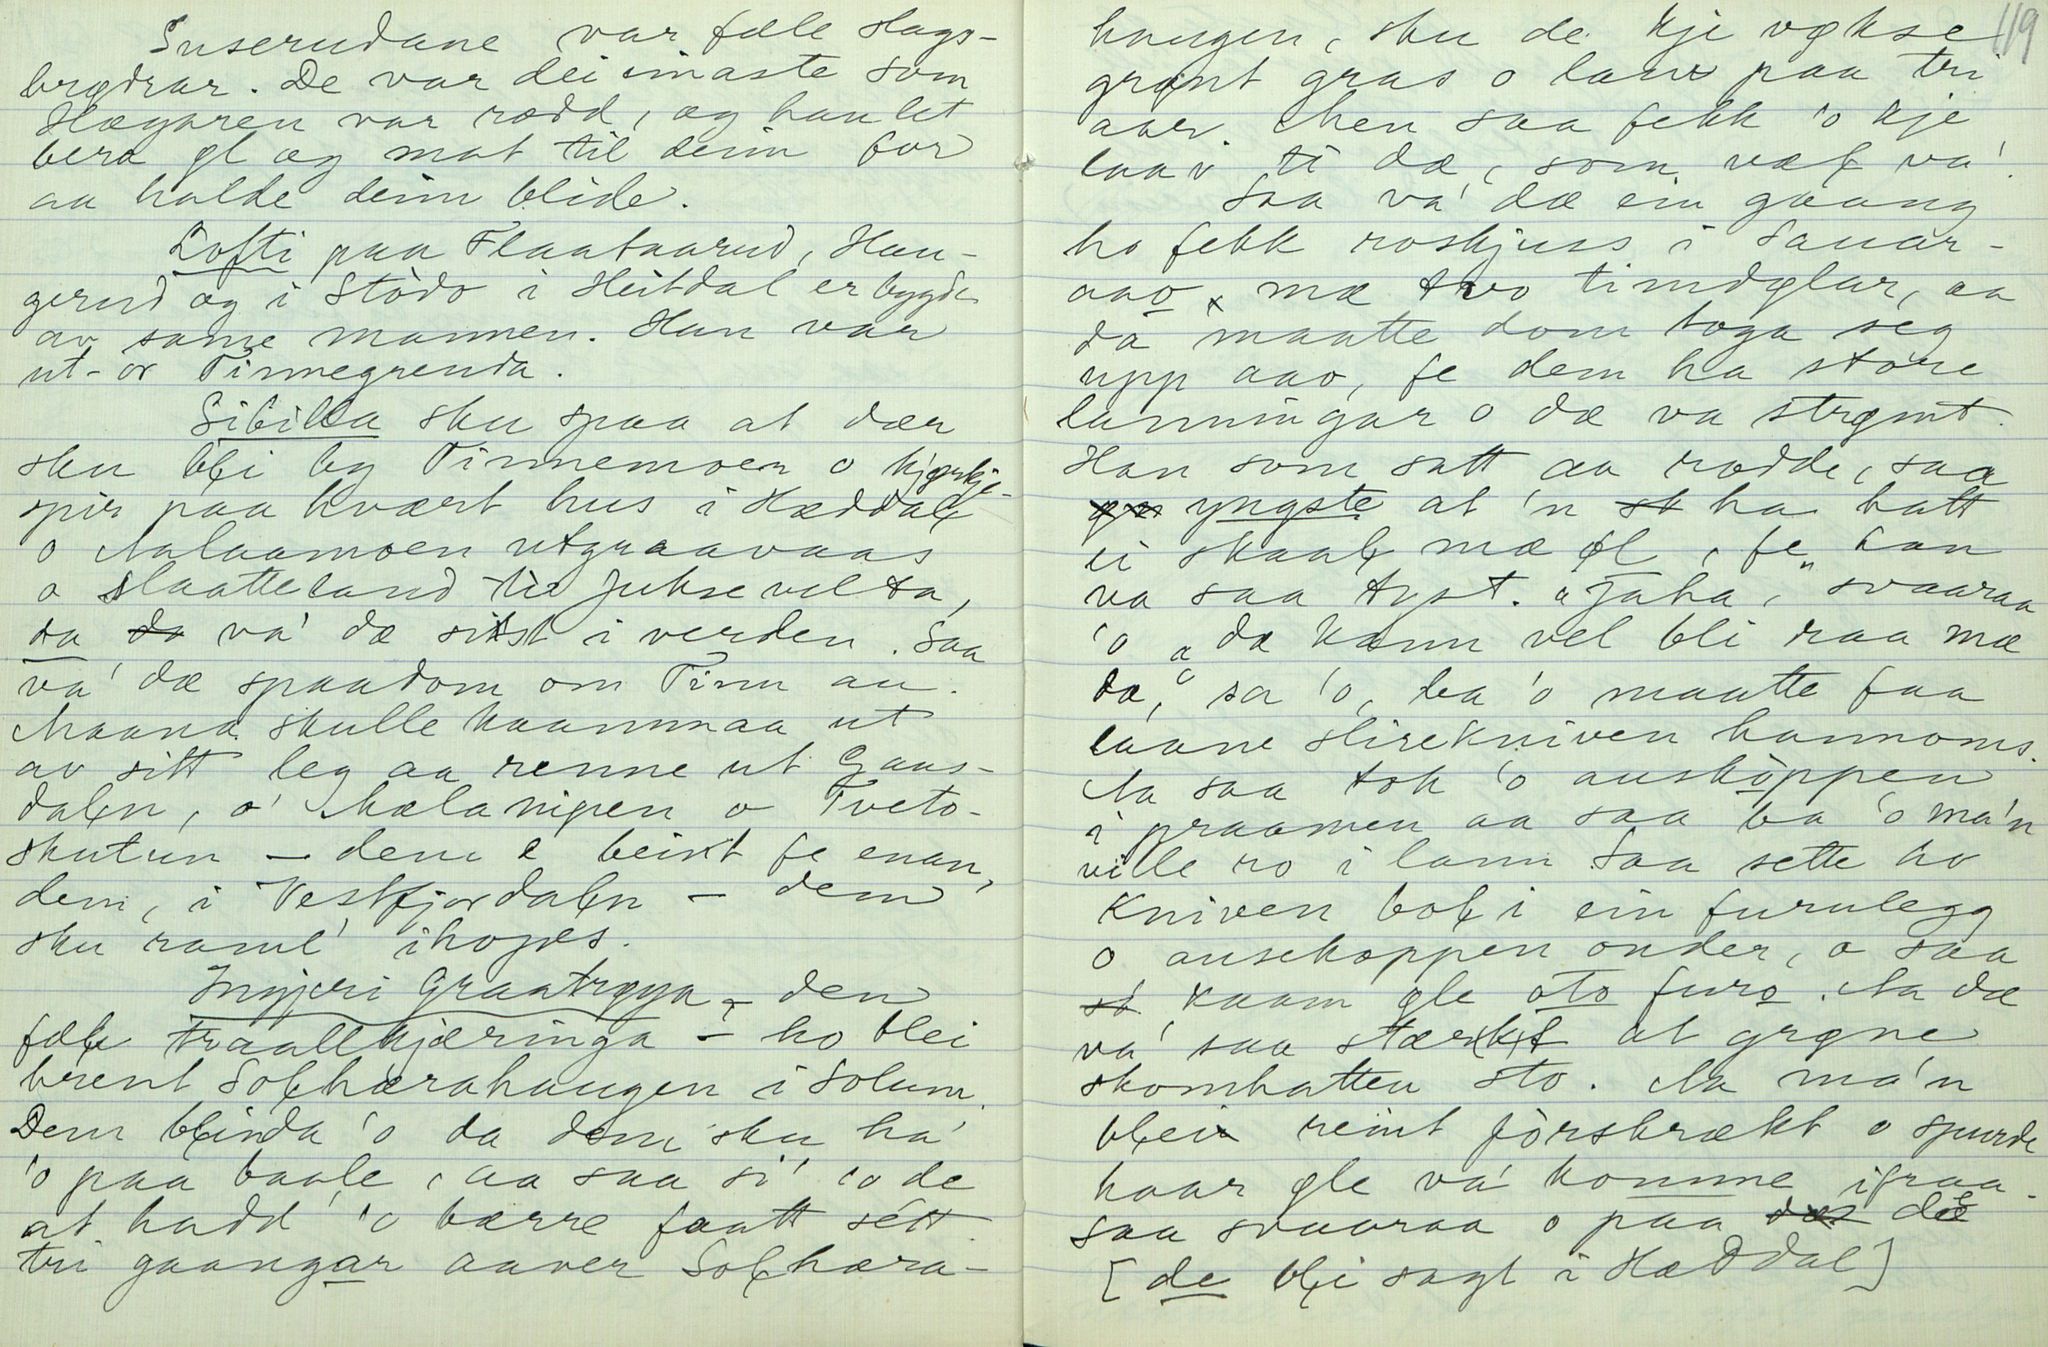 Inserudane var fæle slags-
brødrar. De var dei einaste som
Hægaren var rædd, og han let
bera øl og mat til deim for
aa halde deim blide.
Lofti paa Flaataarud, Hau-
gerud og i Stòdo i Heitdal er bygde
av same mannen. Han var
ut-or Tinnegrenda.
Sibilla sku spaa at dær
sku błi by Tinnemoen o kjørkje-
spir paa kvært hus i Hæddalł
o Aalaamoen utgraavaas
o slaatteland te Jukse velta,
da va' dæ sist i verden. Saa
va' dæ spaadom om Tinn au.
Maana skulle kaammaa ut
av sitt leg aa renne ut Gaus-
dałn, o' Mælanipen o Tveto-
skutun — dem e beint fe enan,
dem, i Vestfjordałn — dem
sku raml' ihopes.
Ingjeri Graatrøya — den
fæłe traallkjæringa — ho blei
brent Sołhærahaugen i Solum.
Dem błinda 'o da dem sku ha'
'o paa baale, aa saa si' 'o de
at hadd' 'o bærre faatt sétt
tri gaangar aaver Sołhæra-
119
haugen, sku de kje vøkse
grønt gras o lauv paa tri
aar. Men saa fekk 'o kje
laav ti dæ, som væł va'.
Saa va' dæ ein gaang
ho fekk roskjuss i Sauar-
aao mæ two timdølar, aa
da maatte dom toga seg
upp aao, fe dem ha store
lanningar o dæ va strømt.
Han som satt aa rodde, saa
yngste at 'n ha hatt
ei skaał mæ øl, fe han
va saa tyst. "Jaha, svaaraa
'o "dæ kann vel bli raa mæ
dæ," sa 'o, ba 'o maatte faa
laane slirekniven hannoms.
Aa saa tok 'o ausköppen
i praamen aa saa ba 'o ma'n
ville ro i lann. Saa sette ho
kniven bołi ein furulegg
o ausekoppen onder, o saa
kaam øle oto furo. Aa dæ
va' saa stærkt at grøne
skomhatten sto. Aa ma'n
błei reint fòrskrækt o spurde
haar øle va' komme ifraa.
Saa svaaraa o paa dæ
[de błi sagt i Hæddal]